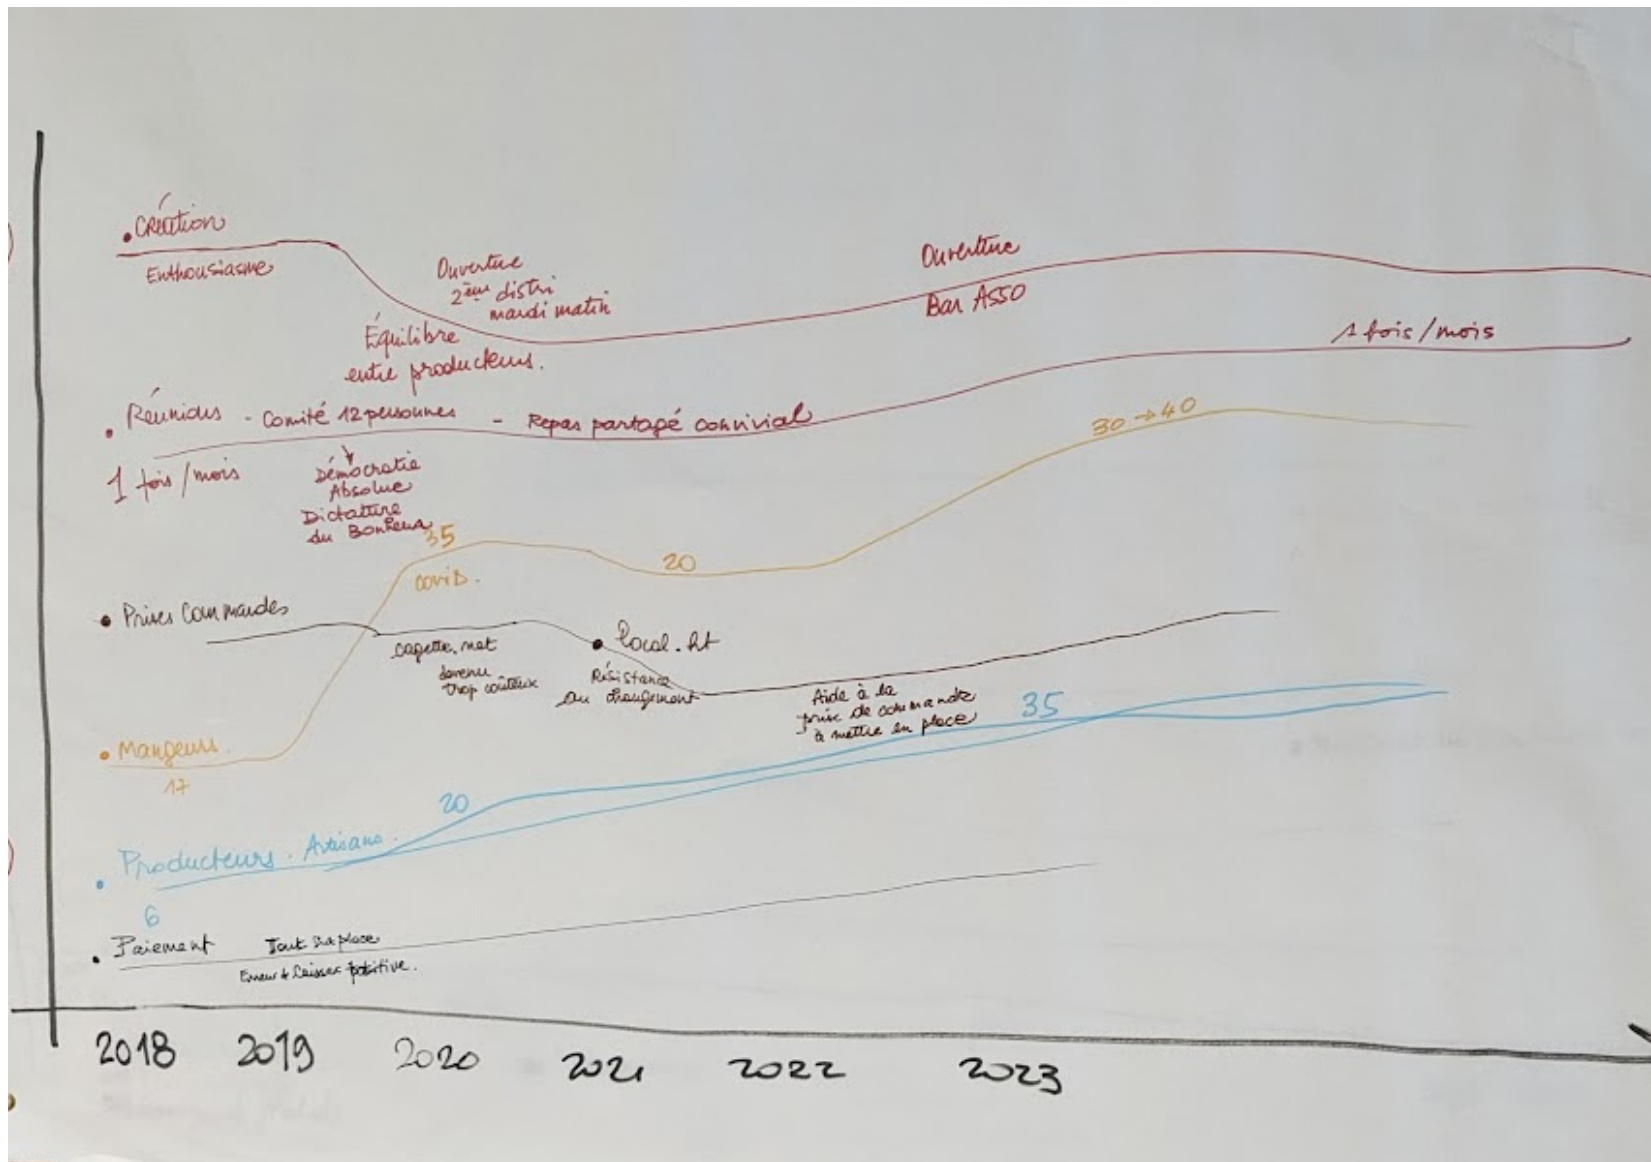 Création
Enthousiasme
Ouverture
2ème distri
mardi matin
Équilibre
entre producteurs.
Ouverture
Bar ASSO
1 fois/mois
Réunions - Comité 12 personnes - Repas partagé convivial
1 fois/mois
Démocratie
Absolue
Dictature
du Bonheur
35
covid.
20
30 → 40
Prises Commandes
cagette.net
devenu
trop coûteux
local.
Résistance
au changement
Aide à la
prise de commande
à mettre en place
Mangeurs.
17
Producteurs. Artisans.
6
20
35
Paiement
Tout sur place
Erreur de caisse positive.
2018 2019 2020 2021 2022 2023